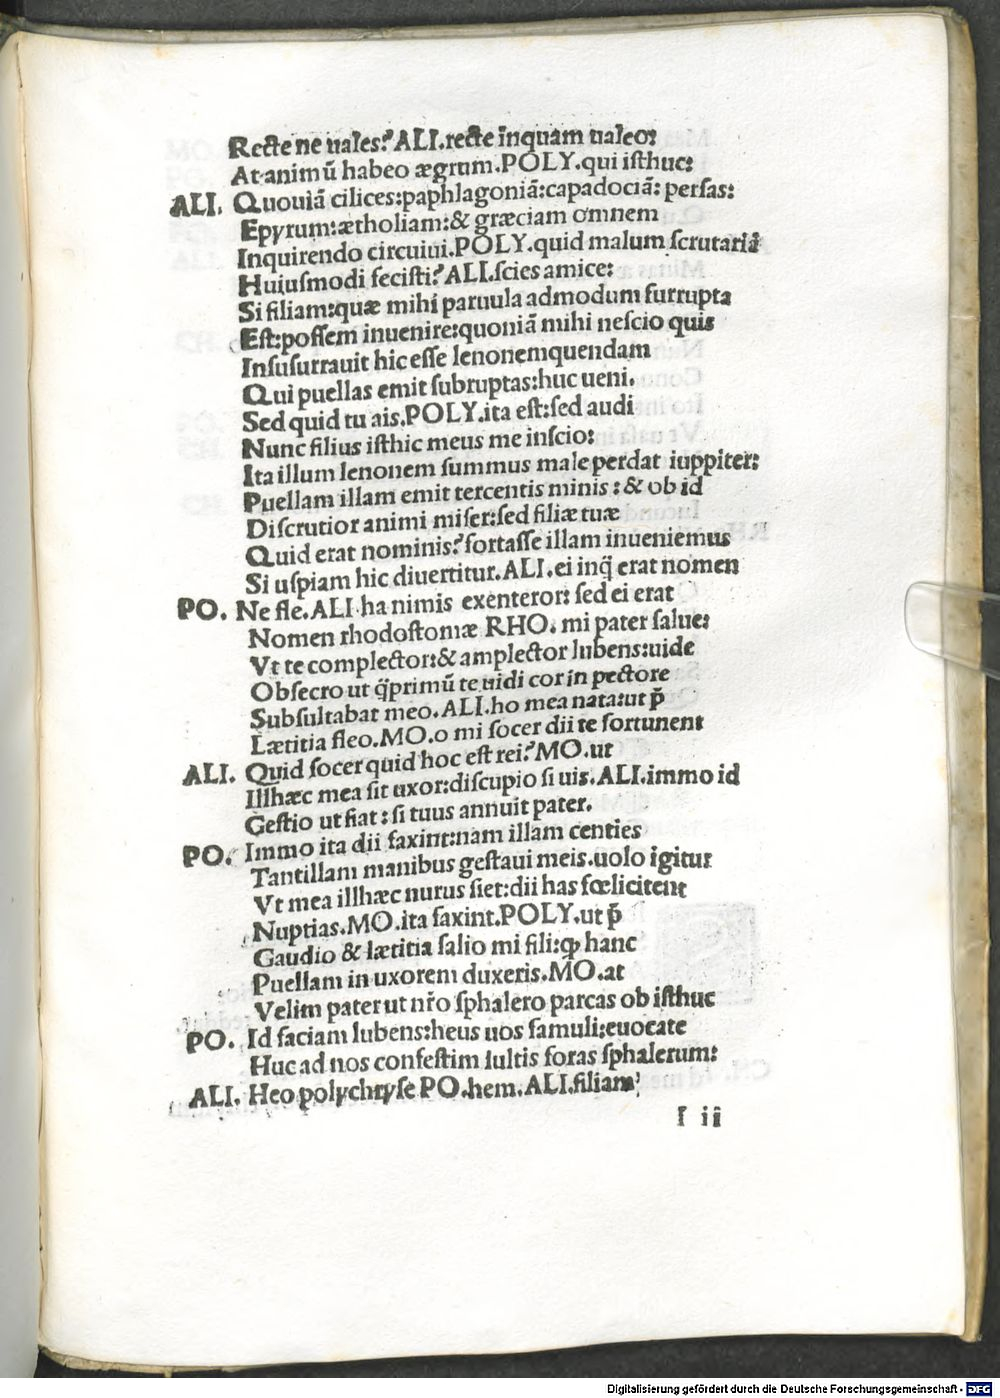 Recte ne uales? ALI.recte inquam ualeo:
At animū habeo ægrum.POLY.qui isthuc:
ALI. Quouiā cilices:paphlagoniā:capadociā: persas:
Epyrum:ætholiam:& græciam omnem
Inquirendo circuiui.POLY.quid malum scrutariā
Huiusmodi fecisti? ALI.scies amice:
Si filiam:quæ mihi paruula admodum surrupta
Est:possem inuenire:quoniā mihi nescio quis
Insusurrauit hic esse lenonemquendam
Qui puellas emit subruptas:huc ueni.
Sed quid tu ais.POLY.ita est:sed audi
Nunc filius isthic meus me inscio:
Ita illum lenonem summus male perdat iuppiter:
Puellam illam emit tercentis minis : & ob id
Discrutior animi miser:sed filiæ tuæ
Quid erat nominis? fortasse illam inueniemus
Si uspiam hic diuertitur.ALI.ei inq̄ erat nomen
PO. Ne fle.ALI.ha nimis exenteror: sed ei erat
Nomen rhodostomæ RHO. mi pater salue:
Vt te complector:& amplector lubens:uide
Obsecro ut q̄primū te uidi cor in pectore
Subsultabat meo.ALI.ho mea nata:ut p̄
Lætitia fleo.MO.o mi socer dii te fortunent
ALI. Quid socer quid hoc est rei? MO.ut
Illhæc mea sit uxor:discupio si uis.ALI.immo id
Gestio ut fiat : si tuus annuit pater.
PO. Immo ita dii faxint:nam illam centies
Tantillam manibus gestaui meis.uolo igitur
Vt mea illhæc nurus siet:dii has fœlicitent
Nuptias.MO.ita faxint.POLY.ut p̄
Gaudio & lætitia salio mi fili:ꝙ hanc
Puellam in uxorem duxeris.MO.at
Velim pater ut nr̄o sphalero parcas ob isthuc
PO. Id faciam lubens:heus uos famuli:euocate
Huc ad nos confestim iultis foras sphalerum:
ALI. Heo polychryse PO.hem.ALI.filiam
I ii
Digitalisierung gefördert durch die Deutsche Forschungsgemeinschaft - DFG